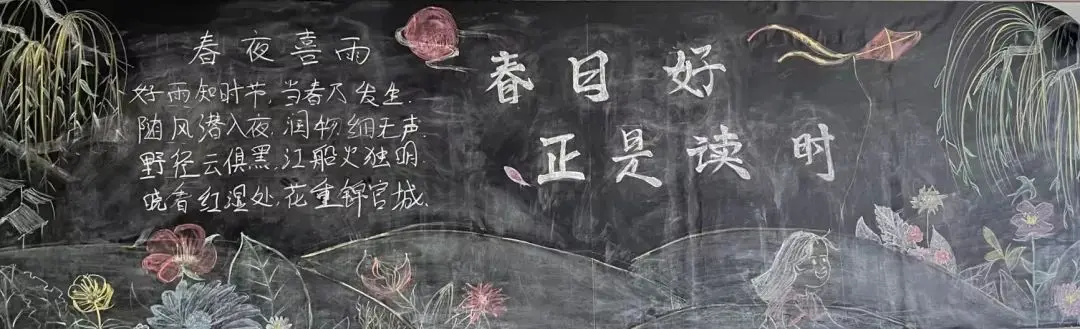 春夜喜雨
好雨知时节,当春乃发生.
随风潜入夜.润物细无声.
野径云俱黑.江船火独明.
晓看红湿处.花重锦官城.
春日好
正是读时